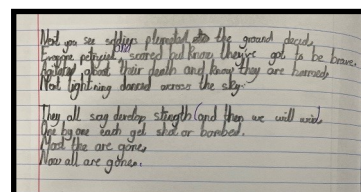 Next you see soldiers plumpted to the ground decid
Everyone petrified, scared but know they've got to be brave.
about their death and know they are
Next lightning danced across the sky.
They all say develop strength (and then we will
One by one each get shot or bombed.
Most the are gone.
Now all are gone.